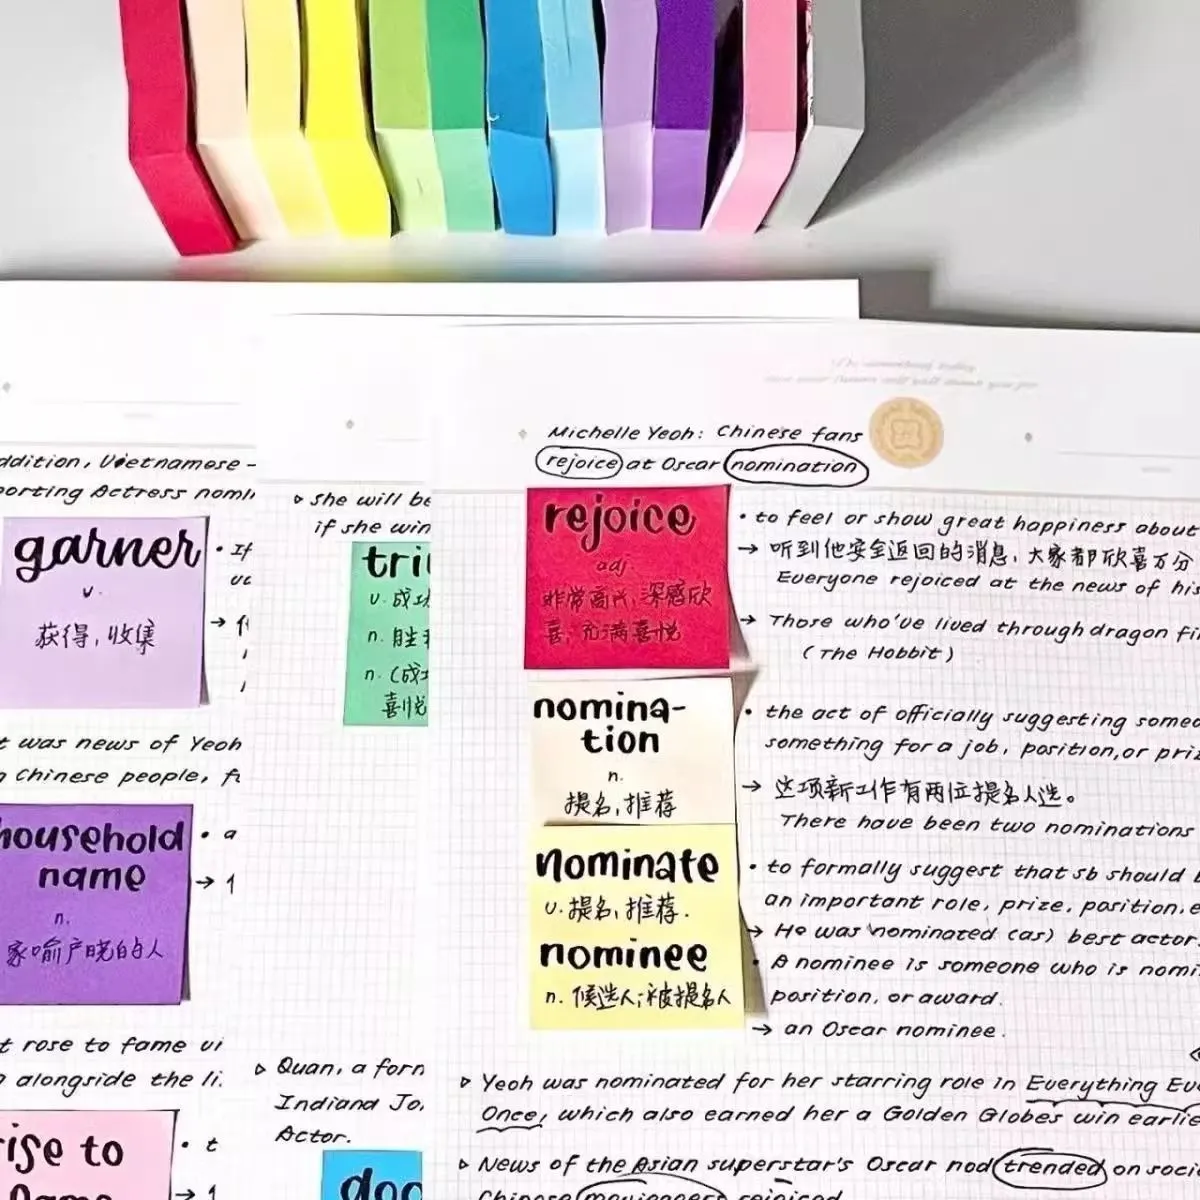 Michelle Yeoh: Chinese fans
rejoice at Oscar nomination
rejoice
adj.
非常高兴，深感欣
喜，充满喜悦
• to feel or show great happiness about
→ 听到他安全返回的消息，大家都欣喜万分
Everyone rejoiced at the news of his
→ Those who've lived through dragon fi
(The Hobbit)
nomina-
tion
n.
提名，推荐
• the act of officially suggesting someo
something for a job, position, or priz
→ 这项新工作有两位提名人选。
There have been two nominations
nominate
v. 提名，推荐.
nominee
n. 候选人；被提名人
• to formally suggest that sb should b
an important role, prize, position, e
→ He was nominated (as) best actor
• A nominee is someone who is nomi
position, or award.
→ an Oscar nominee.
▹ Yeoh was nominated for her starring role in Everything Eve
Once, which also earned her a Golden Globes win earlie
▹ News of the Asian superstar's Oscar nod trended on soci
Chinese moviegoers rejoiced
▹ She will be
if she win
tri
v. 成功
n. 胜
n. (成
喜悦
▹ Quan, a form
Indiana Jo
Actor.
doc
ddition, Vietnamese -
porting Actress nomi
garner
v.
获得，收集
• If
→
t was news of Yeoh
Chinese people, f
household
name
n.
家喻户晓的人
• a
→
t rose to fame vi
alongside the li
rise to
fame
• t
→